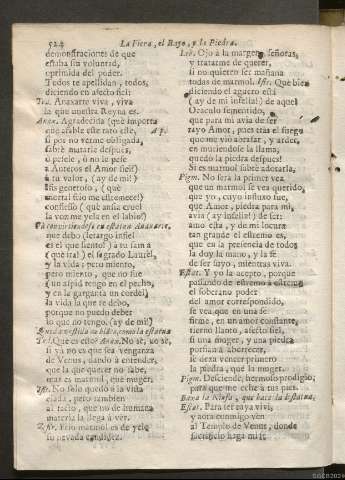 524
La Fiera, el Rayo, y la Piedra.
demonstraciones de que
estaba su voluntad,
oprimida del poder.
Todos te apellidan, todos,
diciendo en afecto fiel:
Tod. Anaxarte viva, viva
la que nuestra Reyna es.
Anax. Agradecida (què importa
que afable este rato estè, Ap.
si por no verme obligada,
sabrè matarle despues,
ò pelele, ò no le pese
à Anteros el Amor fiel!)
à tu valor, (ay de mi!)
Ifis generoso, (què
mortal frio me estremece!)
confieso (què ansia cruel
la voz me yela en el labio!)
Và convirtiendose en estatua Anaxarte.
que debo (letargo infiel
es el que siento!) à tu fama à
(què ira!) el sagrado Laurel,
y la vida; pero miento,
pero miento, que no fue
(un aspid tengo en el pecho,
y en la garganta un cordel)
la vida la que te debo,
porque no puedo deber
lo que no tengo. (ay de mi!)
como la estatua
Tod. Què es esto? Anax. No sè, no sè,
si yà no es que sea venganza
de Venus, dando à entender,
que la que querer no sabe,
mas es marmol, que muger.
Ifis. No solo quedò à la vista
elada, pero tambien
al tacto, que no de humana
materia la llega à vèr.
Zefir. Frio marmol es de yelo
su nevada candidèz.
Leb. Ojo à la margen, señoras,
y tratarme de querer,
si no quieren ser mañana
todas de marmol. Ifis. Que bien
diciendo el aguero està
(ay de mi infeliz!) de aquel
Oraculo sementido,
que para mi avia de ser
rayo Amor, pues tràs el fuego
que me viò abrasar, y arder,
en muriendose la llama,
quedò la piedra despues!
Si es marmol sabrè adorarla,
Pigm. No serà la primer vez
que un marmol se vea querido,
que yo, cuyo influxo fue,
que Amor, piedra para mi,
avia (ay infeliz!) de ser:
amo esta, y de mi locura
tan grande el estremo es,
que en la presencia de todos
la doy la mano, y la fè
de ser suyo, mientras viva.
Estat. Y yo la acepto, porque
passando de estremo à estremo
el soberano poder
del amor correspondido,
se vea que en una se
firme, en un amor constante,
tierno llanto, afecto fiel,
si una muger, y una piedra
porfian à aborrecer,
se dexa vencer primero
la piedra, que la muger.
Pigm. Desciende, hermoso prodigio,
para que me eche à tus pies.
Baxa la Ninfa, que hace la Estatua.
Estat. Para ser tuya vivi,
y aora conmigo ven
al Templo de Venus, donde
sacrificio haga mi fè